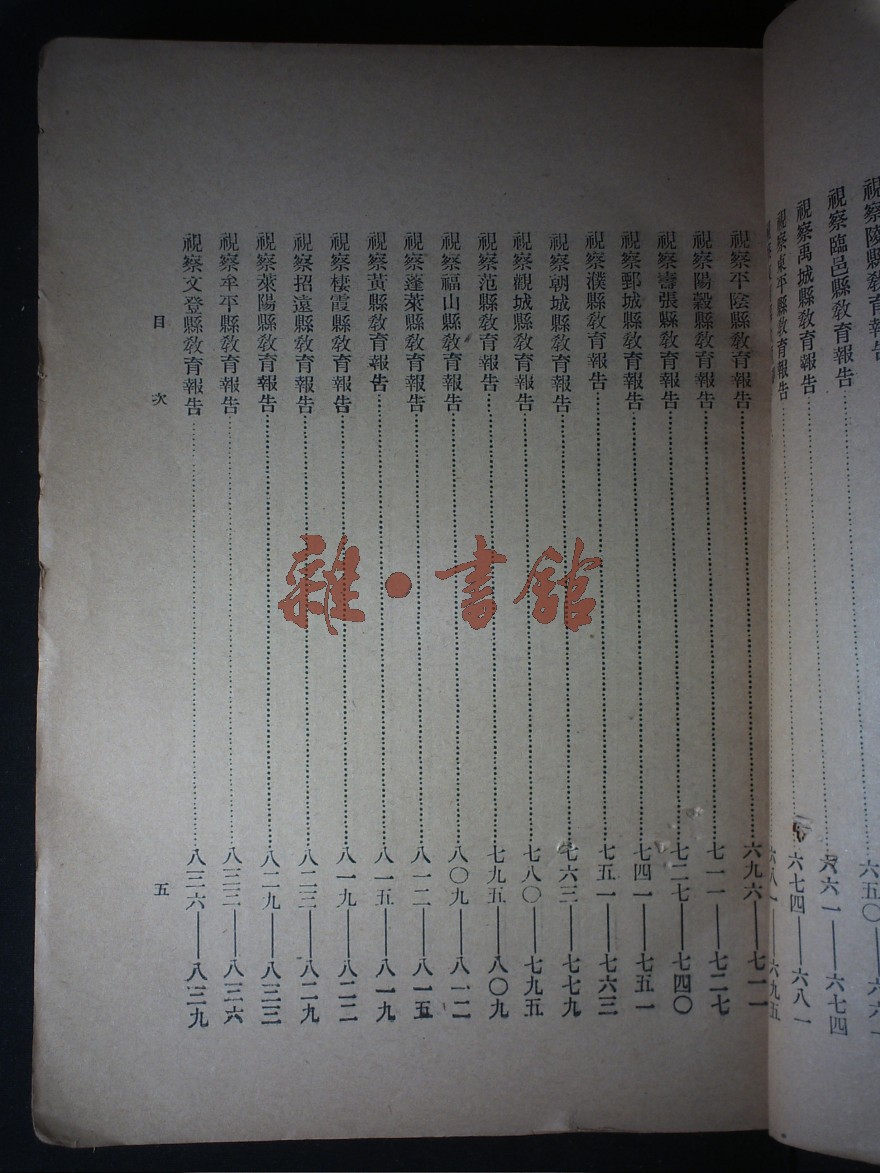 視察陵縣教育報告……六五〇——六六一
視察臨邑縣教育報告……六六一——六七四
視察禹城縣教育報告……六七四——六八一
視察東平縣教育報告……六八一——六九五
視察平陰縣教育報告……六九六——七一一
視察陽穀縣教育報告……七一一——七二七
視察壽張縣教育報告……七二七——七四〇
視察鄄城縣教育報告……七四一——七五一
視察濮縣教育報告……七五一——七六三
視察朝城縣教育報告……七六三——七七九
視察觀城縣教育報告……七八〇——七九五
視察范縣教育報告……七九五——八〇九
視察福山縣教育報告……八〇九——八一二
視察蓬萊縣教育報告……八一二——八一五
視察黃縣教育報告……八一五——八一九
視察棲霞縣教育報告……八一九——八二二
視察招遠縣教育報告……八二三——八二九
視察萊陽縣教育報告……八二九——八三三
視察牟平縣教育報告……八三三——八三六
視察文登縣教育報告……八三六——八三九
目次
五
雜·書館